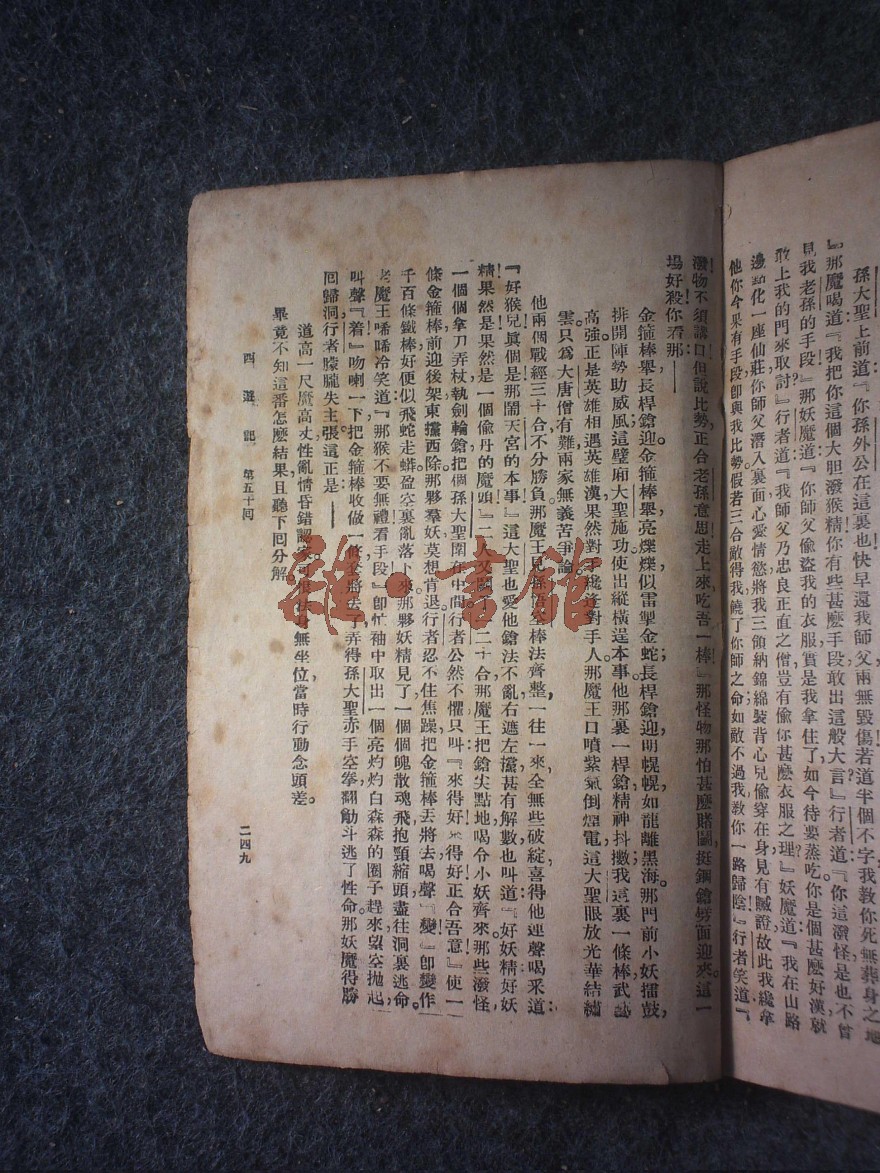 孫大聖上前道『你孫外公在這裏也快早還我師父兩無毀傷若道半個不字我教你死無葬身之地
』那魔喝道『我把你這個大胆潑猴精你有些甚麼手段敢出這般大言』行者道『你這潑怪是也不曾
見我老孫的手段』那妖魔道『你師父偷盜我的衣服實是我拿住了如今待要蒸吃你是個甚麼好漢就
敢上我的門來取討』行者道『我師父乃忠良正直之僧豈有偷你甚麼衣服之理』妖魔道『我在山路
邊點化一座仙莊你師父潛入裏面心愛情慾將我三領納錦綿裝背心兒偷穿在身見有贓證故此我纔拿
他你今果有手段卽與我比勢假若三合敵得我饒了你師之命如敵不過我教你一路歸陰』行者笑道『
潑物不須講口但說比勢正合老孫意思走上來吃吾一棒』那怪物那怕甚麼賭鬭挺鋼鎗劈面迎來這一
場好殺你看那——
金箍棒舉長桿鎗迎金箍棒舉亮爍爍似雷掣金蛇長桿鎗迎明幌幌如龍離黑海那門前小妖擂鼓
排開陣勢助威風這壁廂大聖施功使出縱橫逞本事他那裏一桿鎗精神抖擻我這裏一條棒武藝
高強正是英雄相遇英雄漢果然對手纔逢對手人那魔王口噴紫氣倒煙電這大聖眼放光華結繡
雲只爲大唐僧有難兩家無義苦爭論
他兩個戰經三十合不分勝負那魔王見孫悟空棒法齊整一往一來全無些破綻喜得他連聲喝釆道
『好猴兒眞個是那鬧天宮的本事』這大聖也愛他鎗法不亂右遮左攩甚有解數也叫道『好妖精好妖
精果然是果然是一個偷丹的魔頭』二人又鬭了二十合那魔王把鎗尖點地喝令小妖齊來那些潑怪
一個個拿刀弄杖執劍輪鎗把個孫大聖圍在中間行者公然不懼只叫『來得好來得好正合吾意』使一
條金箍棒前迎後架東攩西除那夥羣妖莫想肯退行者忍不住焦躁把金箍棒丟將去喝聲『變』卽變作
千百條鐵棒好便似飛蛇走蟒盈空裏亂落下來那夥妖精見了一個個魄散魂飛抱頸縮頭盡往洞裏逃命
老魔王唏唏冷笑道『那猴不要無禮看手段』卽忙袖中取出一個亮灼灼白森森的圈子趕來望空拋起
叫聲『着』吻喇一下把金箍棒收做一條套將去了弄得孫大聖赤手空拳翻觔斗逃了性命那妖魔得勝
囘歸洞行者朦朧失主張這正是——
道高一尺魔高丈性亂情昏錯認家可恨法身無坐位當時行動念頭差
畢竟不知這番怎麼結果且聽下囘分解
西遊記 第五十囘
二四九
雜·書館